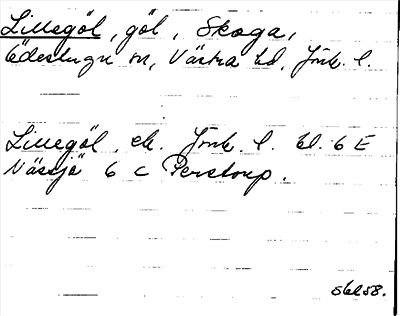 Lillegöl, göl, Skoga,
Ödestugu sn, Västra hd. Jönk. l.
Lillegöl, ek. Jönk. l. bl. 6 E
Nässjö 6 c Perstorp.